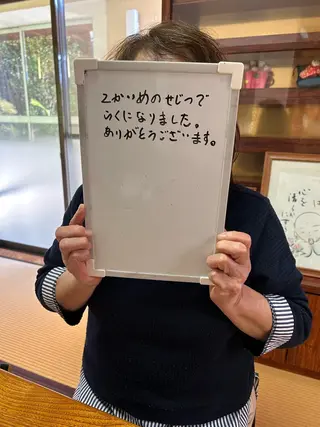 2かいめのせじつで
らくになりました。
ありがとうございます。